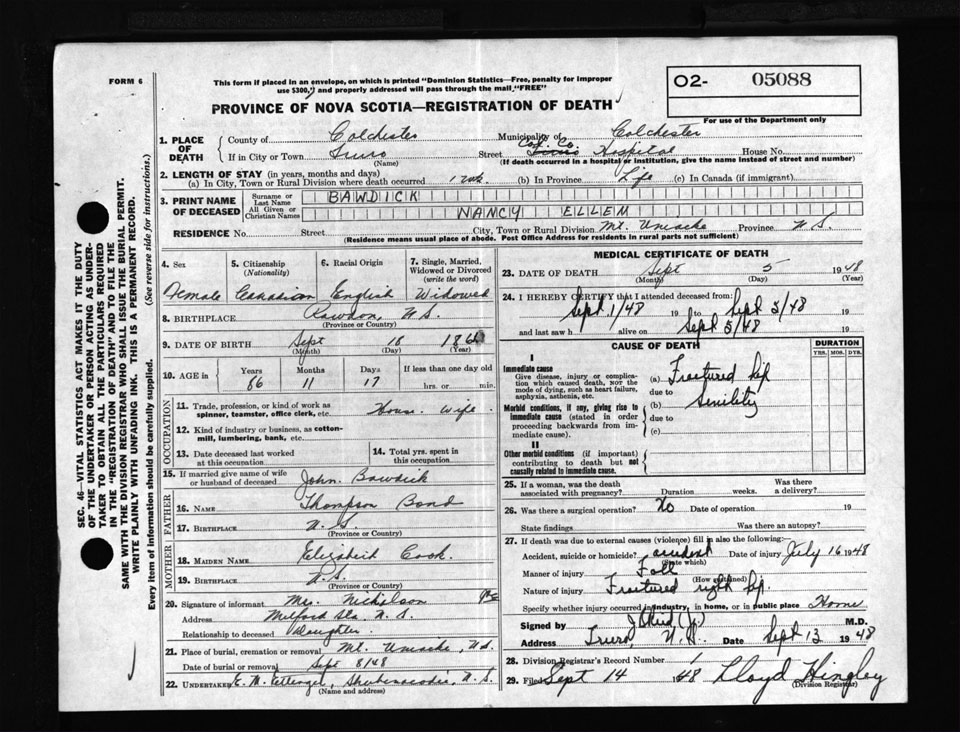 FORM 6
This form if placed in an envelope, on which is printed "Dominion Statistics—Free, penalty for improper
use $300," and properly addressed will pass through the mail "FREE"
O2- 05088
For use of the Department only
PROVINCE OF NOVA SCOTIA—REGISTRATION OF DEATH
SEC. 46—VITAL STATISTICS ACT MAKES IT THE DUTY
OF THE UNDERTAKER OR PERSON ACTING AS UNDER-
TAKER TO OBTAIN ALL THE PARTICULARS REQUIRED
IN THE "REGISTRATION OF DEATH" AND TO FILE THE
SAME WITH THE DIVISION REGISTRAR WHO SHALL ISSUE THE BURIAL PERMIT.
WRITE PLAINLY WITH UNFADING INK. THIS IS A PERMANENT RECORD.
Every item of information should be carefully supplied. (See reverse side for instructions.)
1. PLACE OF DEATH
County of Colchester Municipality of Colchester
If in City or Town Truro (Name) Street Col. Co. Hospital House No.
(If death occurred in a hospital or institution, give the name instead of street and number)
2. LENGTH OF STAY (in years, months and days)
(a) In City, Town or Rural Division where death occurred 1 wk. (b) In Province Life (c) In Canada (if immigrant)
3. PRINT NAME OF DECEASED
Surname or Last Name BAWDICK
All Given or Christian Names NANCY ELLEM
RESIDENCE No. Street City, Town or Rural Division Mt. Uniacke Province N.S.
(Residence means usual place of abode. Post Office Address for residents in rural parts not sufficient)
4. Sex 5. Citizenship (Nationality) 6. Racial Origin 7. Single, Married, Widowed or Divorced (write the word)
Female Canadian English Widowed
8. BIRTHPLACE Rawdon, N.S.
(Province or Country)
9. DATE OF BIRTH Sept 18 186
(Month) (Day) (Year)
10. AGE in Years Months Days If less than one day old
86 11 17 hrs. or min.
OCCUPATION
11. Trade, profession, or kind of work as spinner, teamster, office clerk, etc. House Wife
12. Kind of industry or business, as cotton-mill, lumbering, bank, etc.
13. Date deceased last worked at this occupation 14. Total yrs. spent in this occupation
15. If married give name of wife or husband of deceased John Bawdick
FATHER
16. NAME Thompson Bond
17. BIRTHPLACE N.S.
(Province or Country)
MOTHER
18. MAIDEN NAME Elizabeth Cook
19. BIRTHPLACE N.S.
(Province or Country)
20. Signature of informant Mrs. Nicholson
Address Milford Sta. N.S.
Relationship to deceased Daughter
21. Place of burial, cremation or removal Mt. Uniacke, N.S.
Date of burial or removal Sept 8/48
22. UNDERTAKER E. M. Ettengel, Shubenacadie, N.S.
(Name and address)
MEDICAL CERTIFICATE OF DEATH
23. DATE OF DEATH Sept 5 1948
(Month) (Day) (Year)
24. I HEREBY CERTIFY that I attended deceased from:
Sept 1/48 19 to Sept 5/48 19
and last saw h alive on Sept 5/48 19
CAUSE OF DEATH DURATION
YRS. MOS. DYS.
I
Immediate cause
Give disease, injury or complication which caused death, NOT the mode of dying, such as heart failure, asphyxia, asthenia, etc.
(a) Fractured hip
due to
Morbid conditions, if any, giving rise to immediate cause (stated in order proceeding backwards from immediate cause).
(b) Senility
due to
(c)
II
Other morbid conditions (if important) contributing to death but not causally related to immediate cause.
25. If a woman, was the death associated with pregnancy? Duration weeks. Was there a delivery?
26. Was there a surgical operation? No Date of operation 19
State findings Was there an autopsy?
27. If death was due to external causes (violence) fill in also the following:
Accident, suicide or homicide? accident Date of injury July 16 1948
(State which)
Manner of injury Fall
(How sustained)
Nature of injury Fractured right hip.
Specify whether injury occurred in industry, in home, or in public place Home
Signed by M.D.
Address Truro, N.S. Date Sept 13 1948
28. Division Registrar's Record Number 1
29. Filed Sept 14 1948 Lloyd Hingley
(Division Registrar)